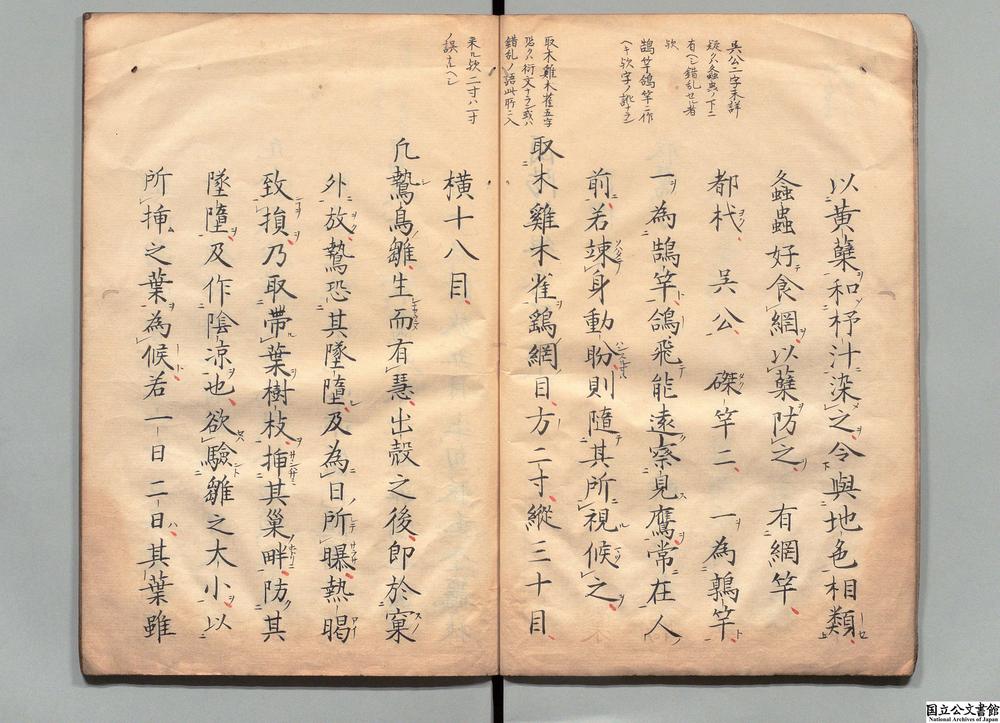 呉公二字未詳
疑クハ螽蟲ノ下ニ
有ヘシ錯乱セル者
欤
鵠竿鴿竿ニ作
ヘキ欤字ノ訛ナラン
取木雞木雀五字
恐クハ衍文ナラン或ハ
錯乱ノ語此所ニ入
来ル欤二寸ハ一寸
ノ誤ナルヘシ
以黄蘗和杼汁染之令與地色相類
螽蟲好食網以蘗防之 有網竿
都杙 呉公 磔竿二 一為鶉竿
一為鵠竿鴿飛能遠察見鷹常在人
前若竦身動盼則隨其所視候之
取木雞木雀鷂網目方二寸縱三十目
横十八目
凢鷙鳥雛生而有慧出殻之後即於窠
外放鷙恐其墜墮及為日所曝熱暍
致損乃取帶葉樹枝揷其巢畔防其
墜墮及作陰凉也欲驗雛之大小以
所揷之葉為候若一日二日其葉雖
国立公文書館
National Archives of Japan